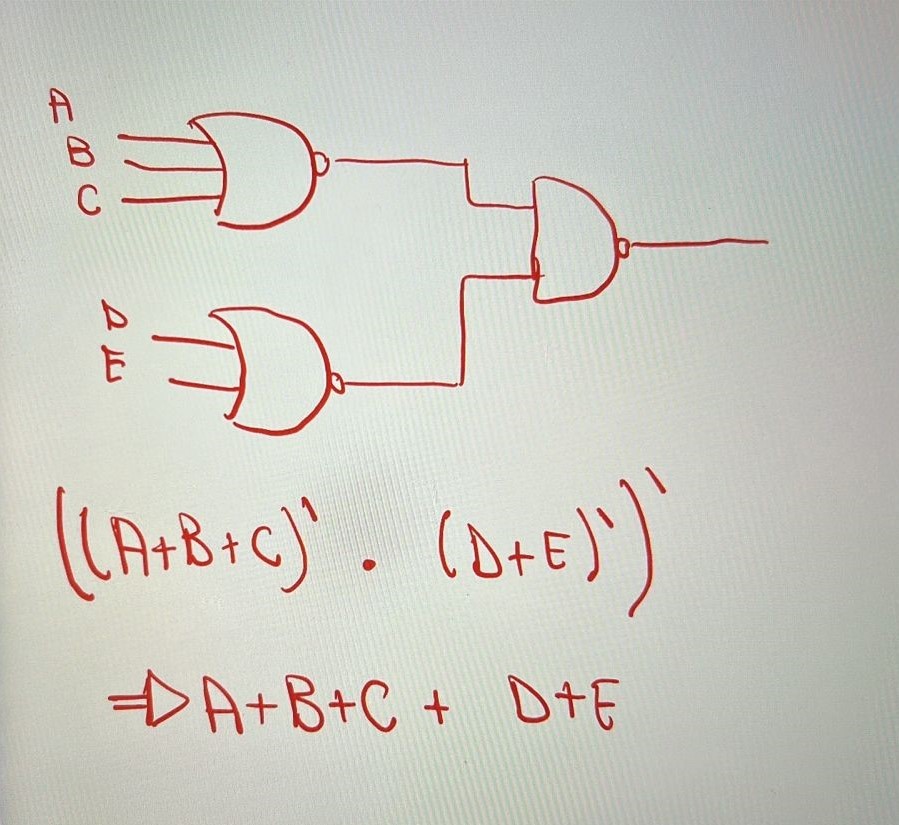 A
B
C
D
E
((A+B+C)' . (D+E)')'
⇒ A+B+C + D+E